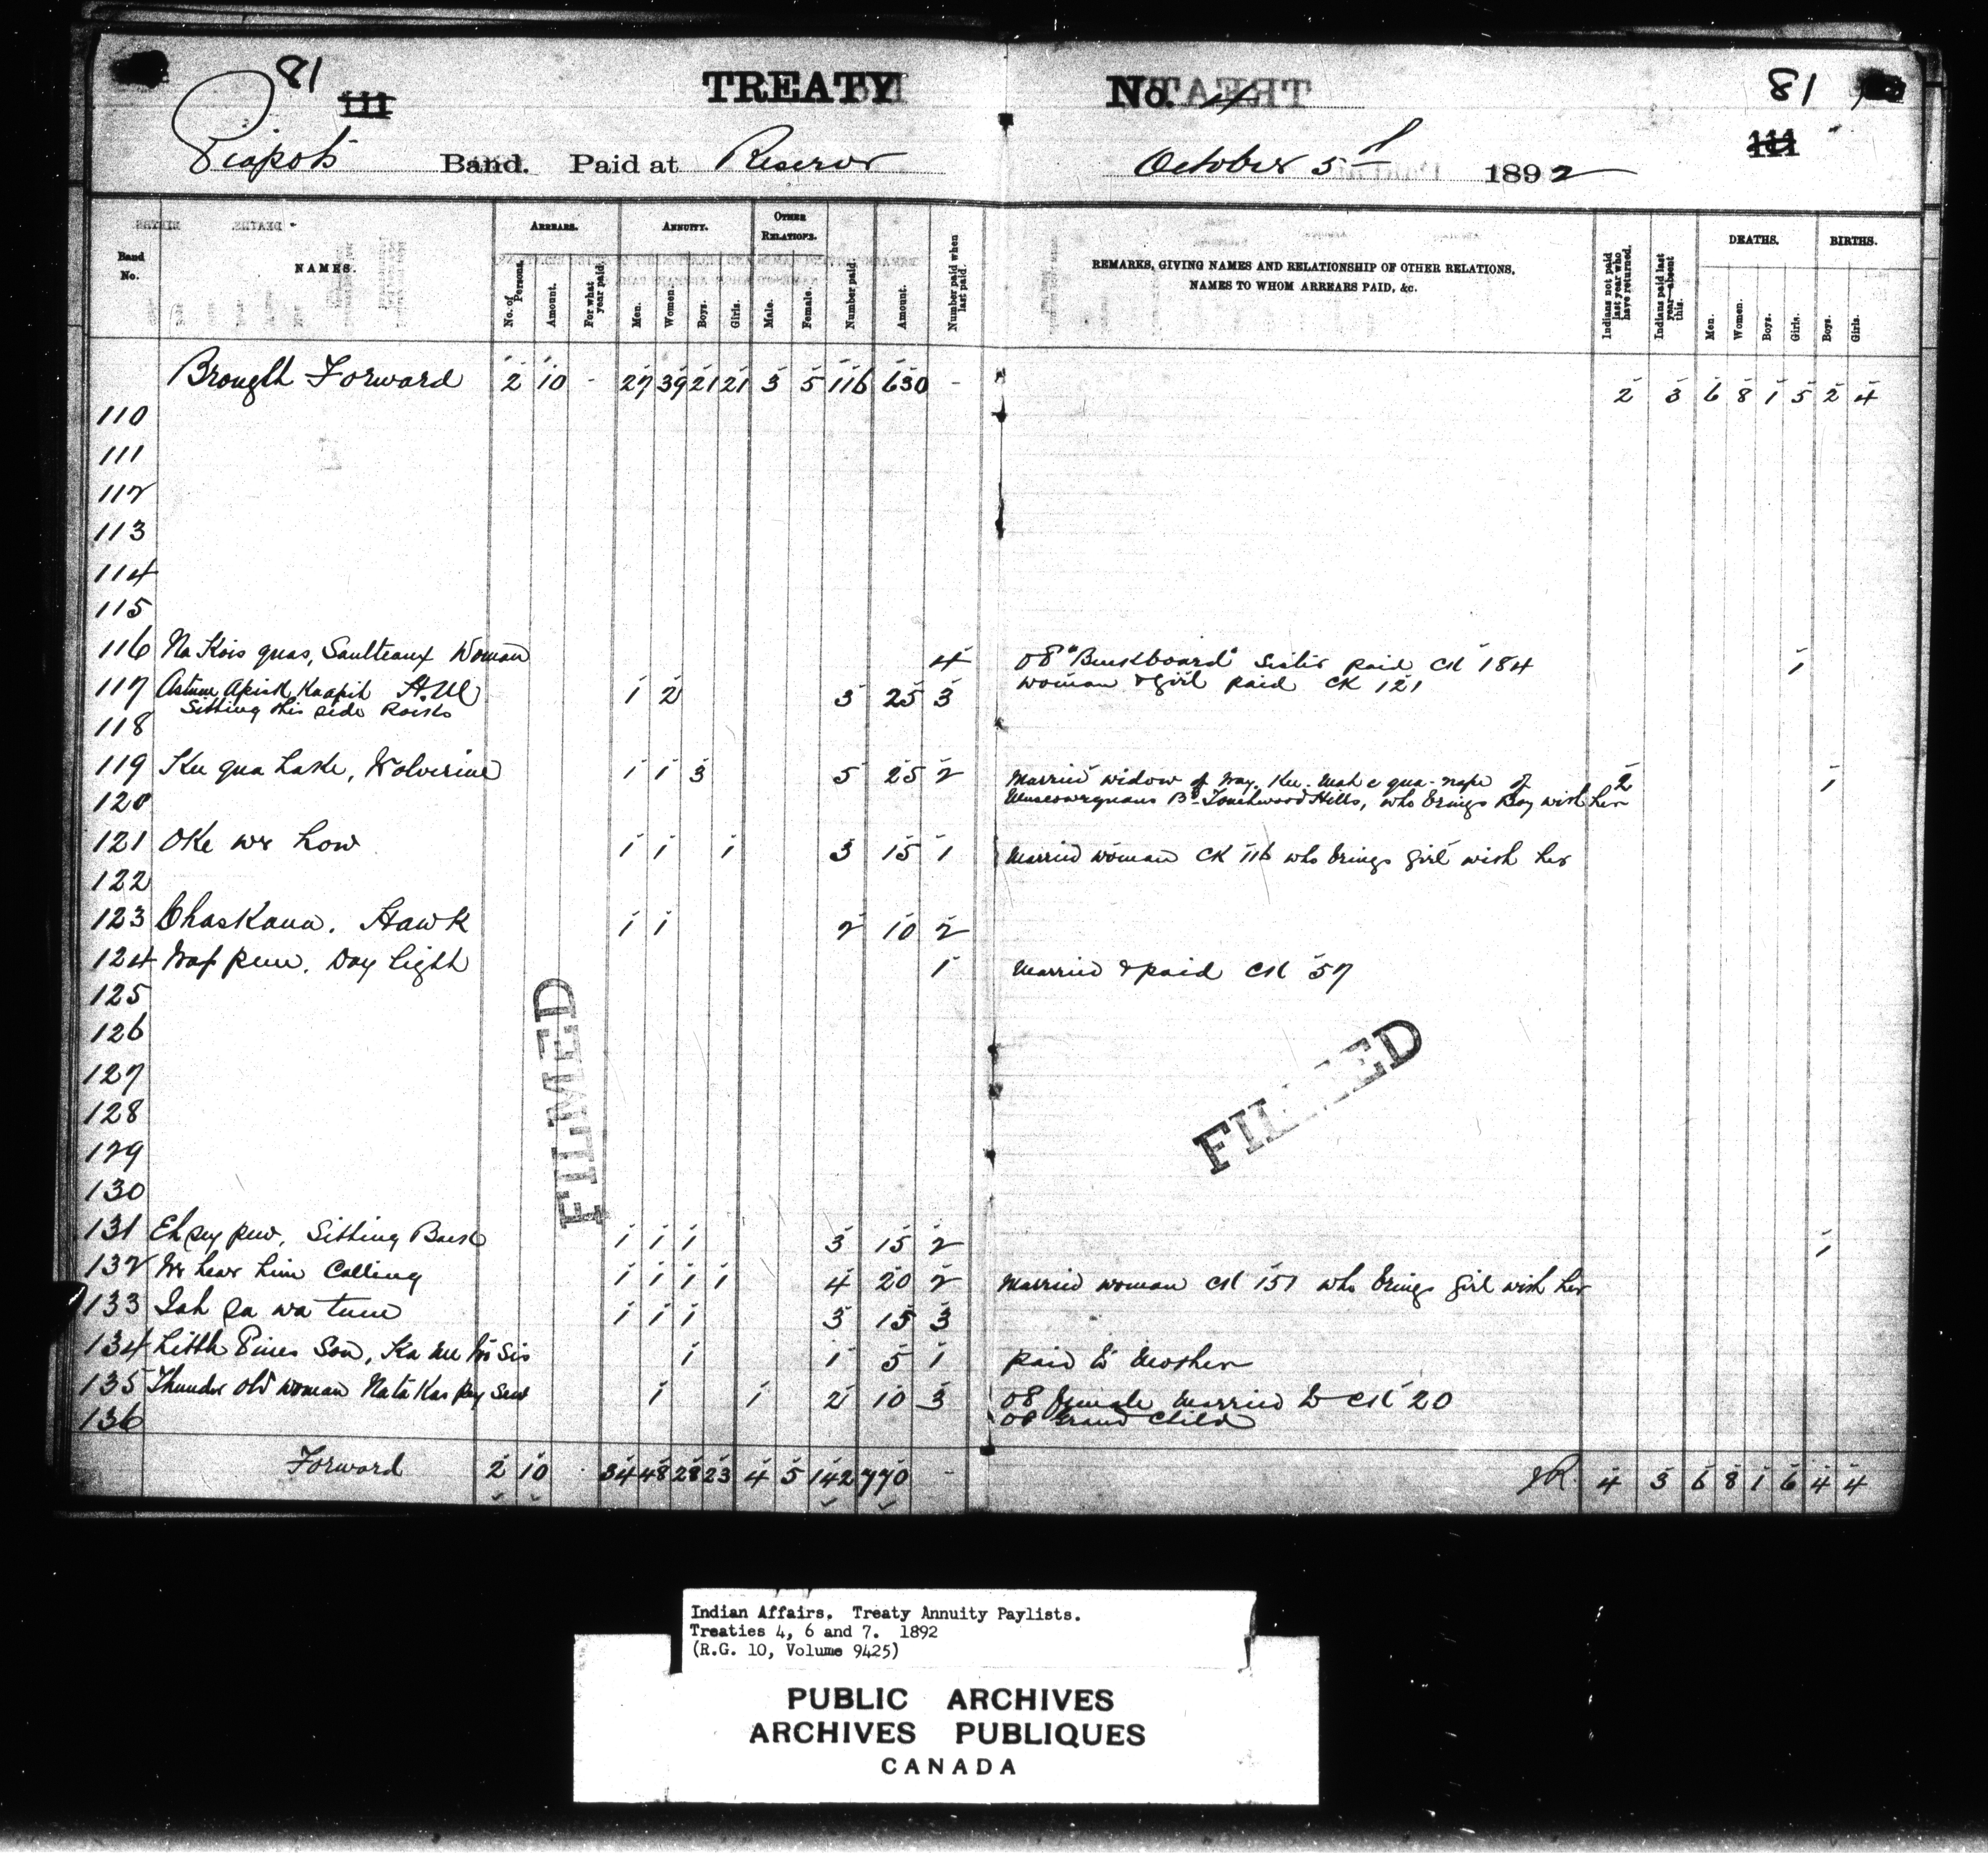 81 TREATY No. 4 81
111 111
Piapots Band. Paid at Reserve October 5th 1892
Band No. NAMES. ARREARS. ANNUITY. OTHER RELATIONS. Number paid. Amount. Number paid when last paid. REMARKS, GIVING NAMES AND RELATIONSHIP OF OTHER RELATIONS, NAMES TO WHOM ARREARS PAID, &c. Indians not paid last year who have returned. Indians paid last year—absent this. DEATHS. BIRTHS.
No. of Persons. Amount. For what year paid. Men. Women. Boys. Girls. Male. Female. Men. Women. Boys. Girls. Boys. Girls.
Brought Forward 2 10 - 27 39 21 21 3 5 116 630 - 2 3 6 8 1 5 2 4
110
111
112
113
114
115
116 Na Kois quas, Saulteaux Woman 4 08 "Buckboard" Sister paid CK 184 1
woman & girl paid CK 121
117 Astum Apisk Kaapit H.M 1 2 3 25 3
Sitting this side Rocks
118
119 Ke qua hake, Wolverine 1 1 3 5 25 2 Married widow of Way. Ke. Mah e qua-nape of 2 1
120 Muscowequans Bd Touchwood Hills, who brings Boy with her
121 Oke we how 1 1 1 3 15 1 Married woman CK 116 who brings girl with her
122
123 Chaskana. Hawk 1 1 2 10 2
124 Wap pun. Day light 1 Married & paid CK 57
125
126
127
128
129
130
131 Eh pey pew, Sitting Back 1 1 1 3 15 2 1
132 We hear him Calling 1 1 1 1 4 20 2 Married woman CK 151 who brings girl with her
133 Iah pa wa tum 1 1 1 3 15 3
134 Little Pines Son, Ka me to sis 1 1 5 1 paid to Mother
135 Thunder old woman Nata Kas pey sew 1 1 2 10 3 08 female Married to CK 20
136 08 Grand Child
Forward 2 10 34 48 28 23 4 5 142 770 - JR. 4 3 6 8 1 6 4 4
FILMED
FILMED
Indian Affairs. Treaty Annuity Paylists.
Treaties 4, 6 and 7. 1892
(R.G. 10, Volume 9425)
PUBLIC ARCHIVES
ARCHIVES PUBLIQUES
CANADA